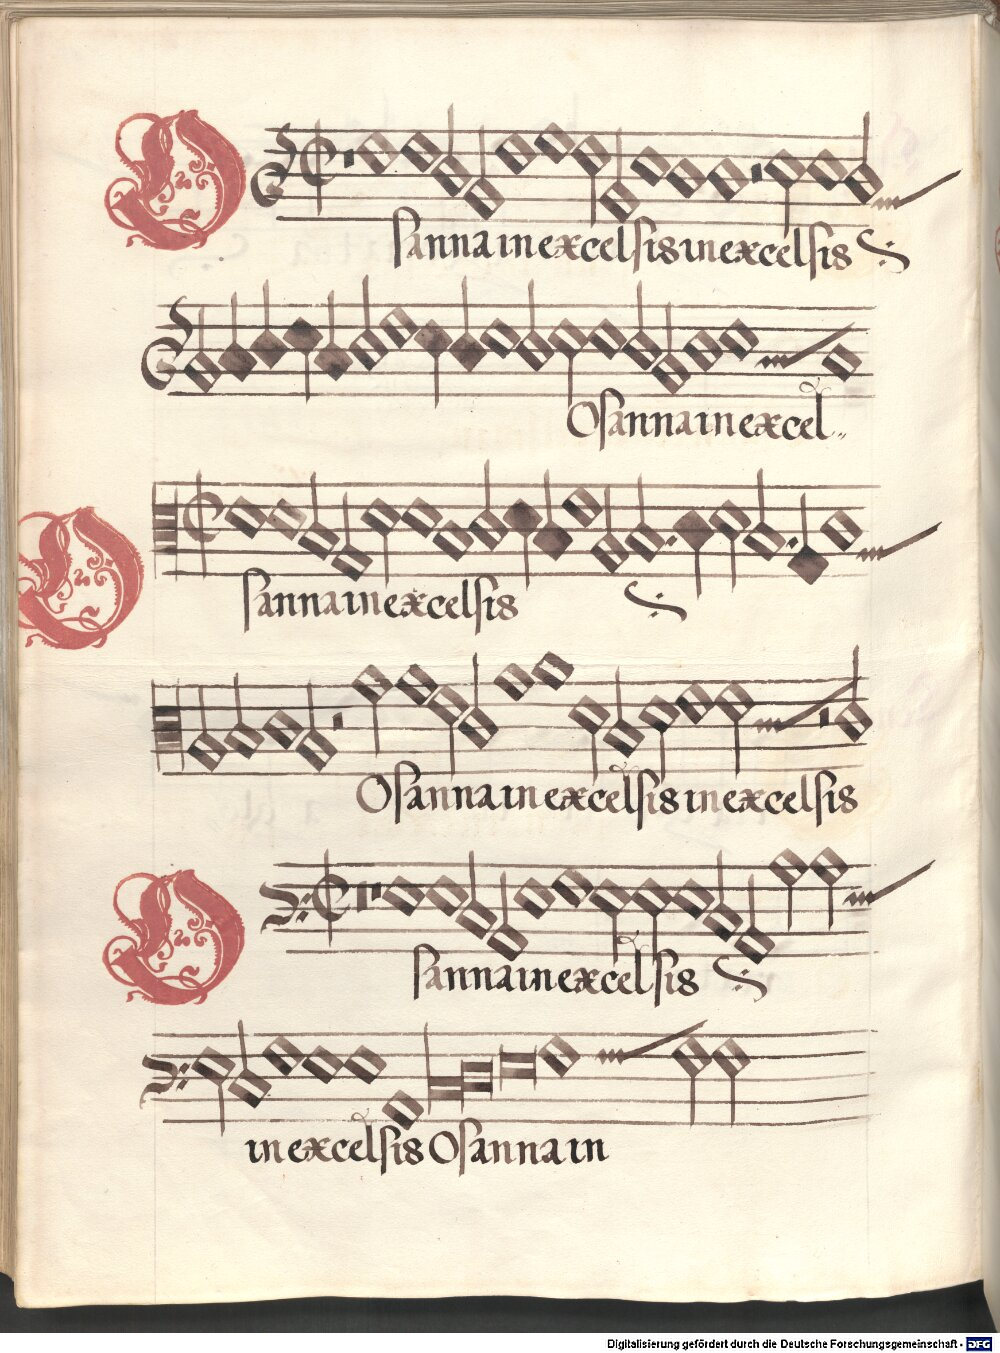 O
sanna in excelsis in excelsis
Osanna in excel„
O
sanna in excelsis
Osanna in excelsis in excelsis
O
sanna in excelsis
in excelsis Osanna in
Digitalisierung gefördert durch die Deutsche Forschungsgemeinschaft - DFG